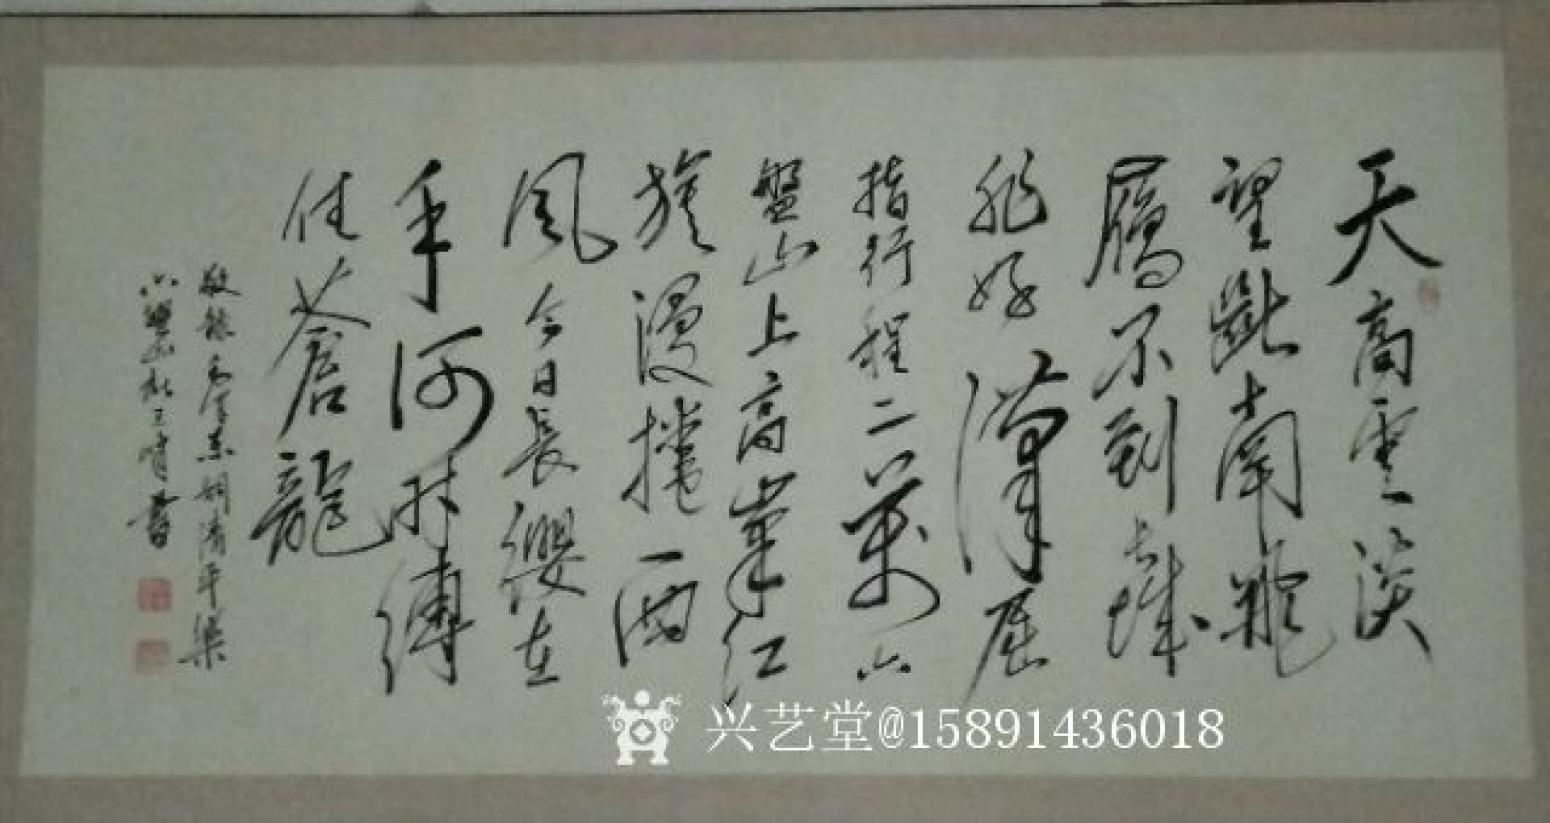 天高雲淡
望斷南飛
鴈不到長城
非好漢屈
指行程二萬六
盤山上高峯紅
旗漫捲西
風今日長纓在
手何時縛
住蒼龍
敬錄毛澤東詞清平樂
六盤山 書
兴艺堂@15891436018